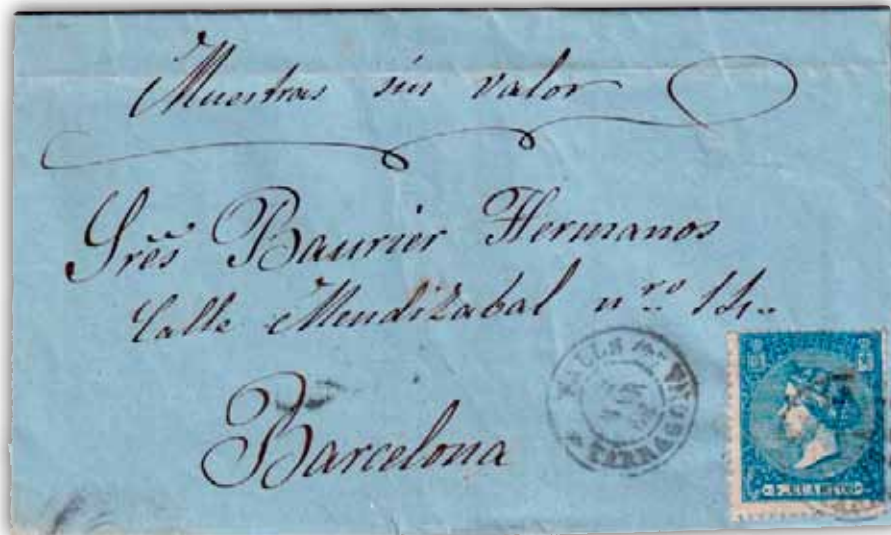 Muestras sin valor
Sres Baurier Hermanos
Calle Mendizabal nro 14.
Barcelona
VALLS
TARRAGONA
CUARTOS